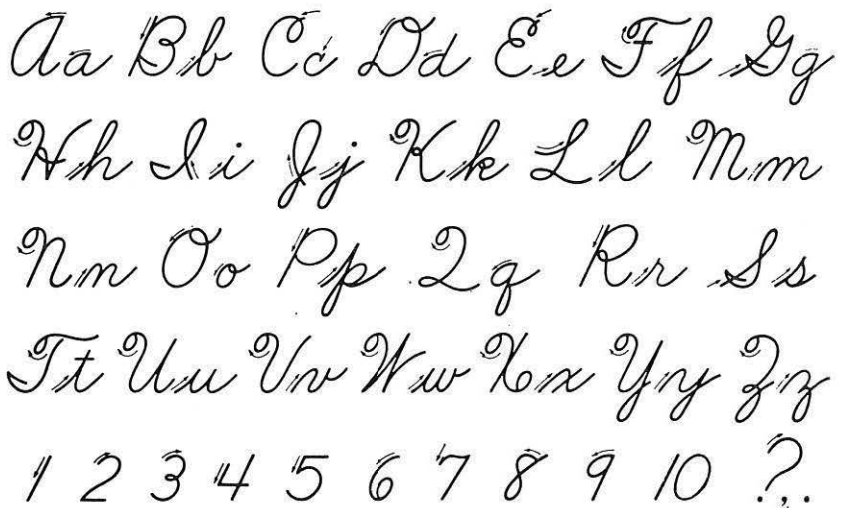 Aa Bb Cc Dd Ee Ff Gg
Hh Ii Jj Kk Ll Mm
Nn Oo Pp Qq Rr Ss
Tt Uu Vv Ww Xx Yy Zz
1 2 3 4 5 6 7 8 9 10 ?,.